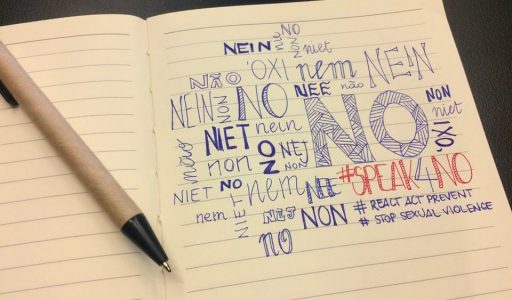 NO
NEIN non NON niet
NÃO 'OXI nem NEIN
NEIN NON NO NEE não NON
niet
NIET nein NO 'OXI
mão non NO NEJ NON
NIET NO nem NEE #SPEAK4NO
nem NIET NEJ NON # REACT ACT PREVENT
# STOP SEXUAL-VIOLENCE
no